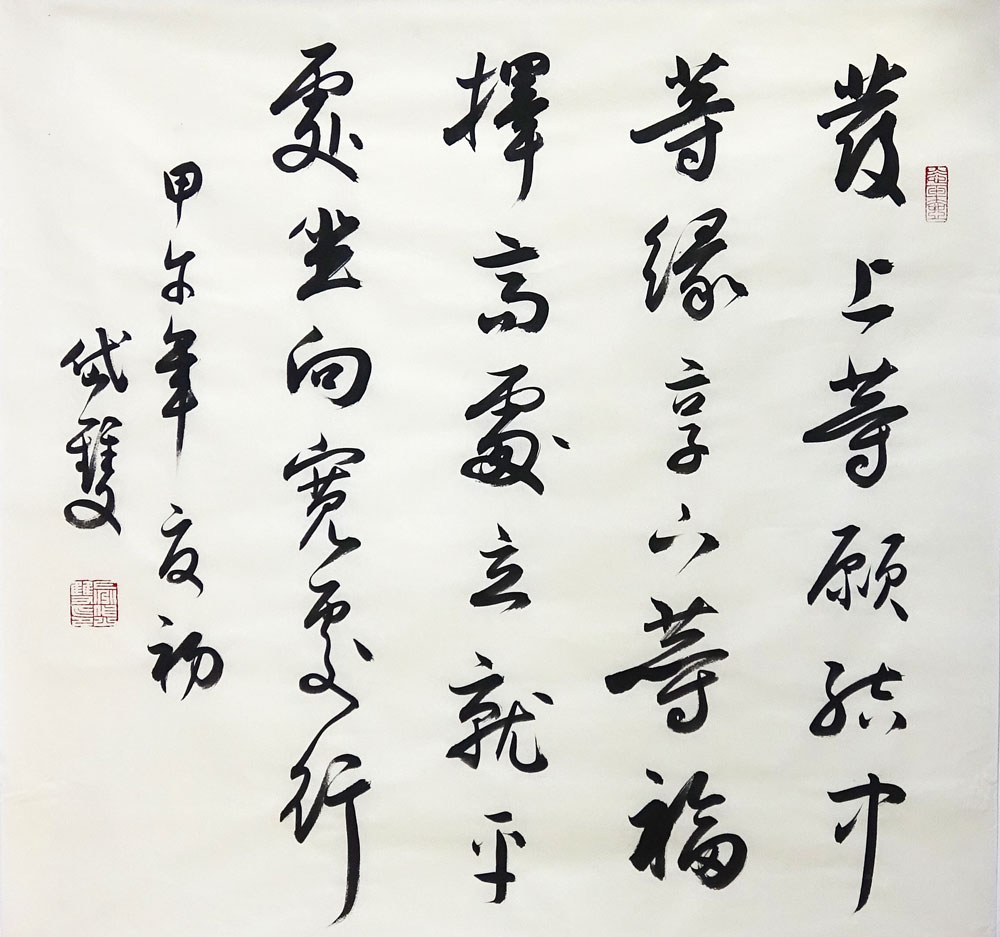 發上等願結中
等緣享下等福
擇高處立就平
處坐向寬處行
甲午年夏初
岱雙